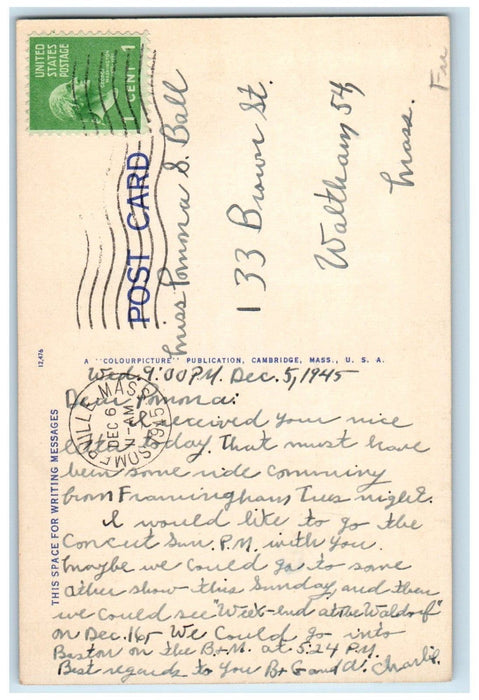 UNITED
STATES
POSTAGE
GEORGE
WASHINGTON
1 CENT 1
POST CARD
Miss Pomona S. Ball
133 Brown St.
Waltham 54,
Mass.
12,476
A "COLOURPICTURE" PUBLICATION, CAMBRIDGE, MASS., U. S. A.
SOMERVILLE MASS
DEC 6
11-AM
1945
THIS SPACE FOR WRITING MESSAGES
Wed. 9:00 P.M. Dec. 5, 1945
Dear Pomona:
I received your nice
letter today. That must have
been some ride comming
from Framingham Tues night.
I would like to go the
Concert Sun. P.M. with you.
Maybe we could go to some
other show this Sunday, and then
we could see "Week-end at the Waldorf"
on Dec. 16, We could go into
Boston on the B+M. at 5:24 P.M.
Best regards to you B+G and d. Charlie.